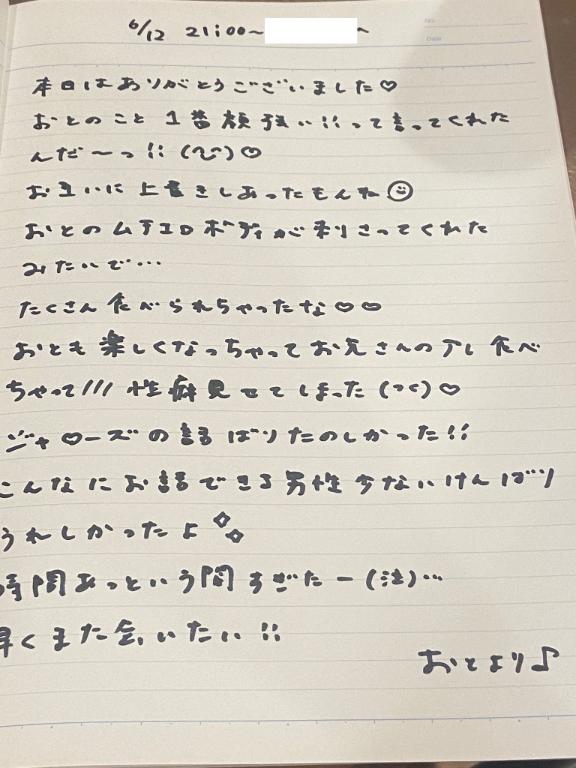 6/12 21:00〜 〜
NO.
Date
本日はありがとうございました♡
おとのこと1番顔強い!!って言ってくれた
んだ〜っ!! ♡
お互いに上書きしあったもんね☺
おとのムチエロボディが刺さってくれた
みたいで…
たくさん食べられちゃったな♡♡
おとも楽しくなっちゃってお兄さんのアレ食べ
ちゃって///性癖見せてしまった ♡
ジャローズの話ばりたのしかった!!
こんなにお話できる男性少ないけんばり
うれしかったよ
時間あっという間すぎたー(泣)…
早くまた会いたい!!
おとより♪